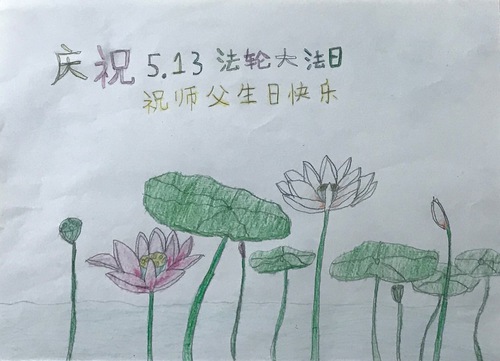 庆祝5.13法轮大法日
祝师父生日快乐